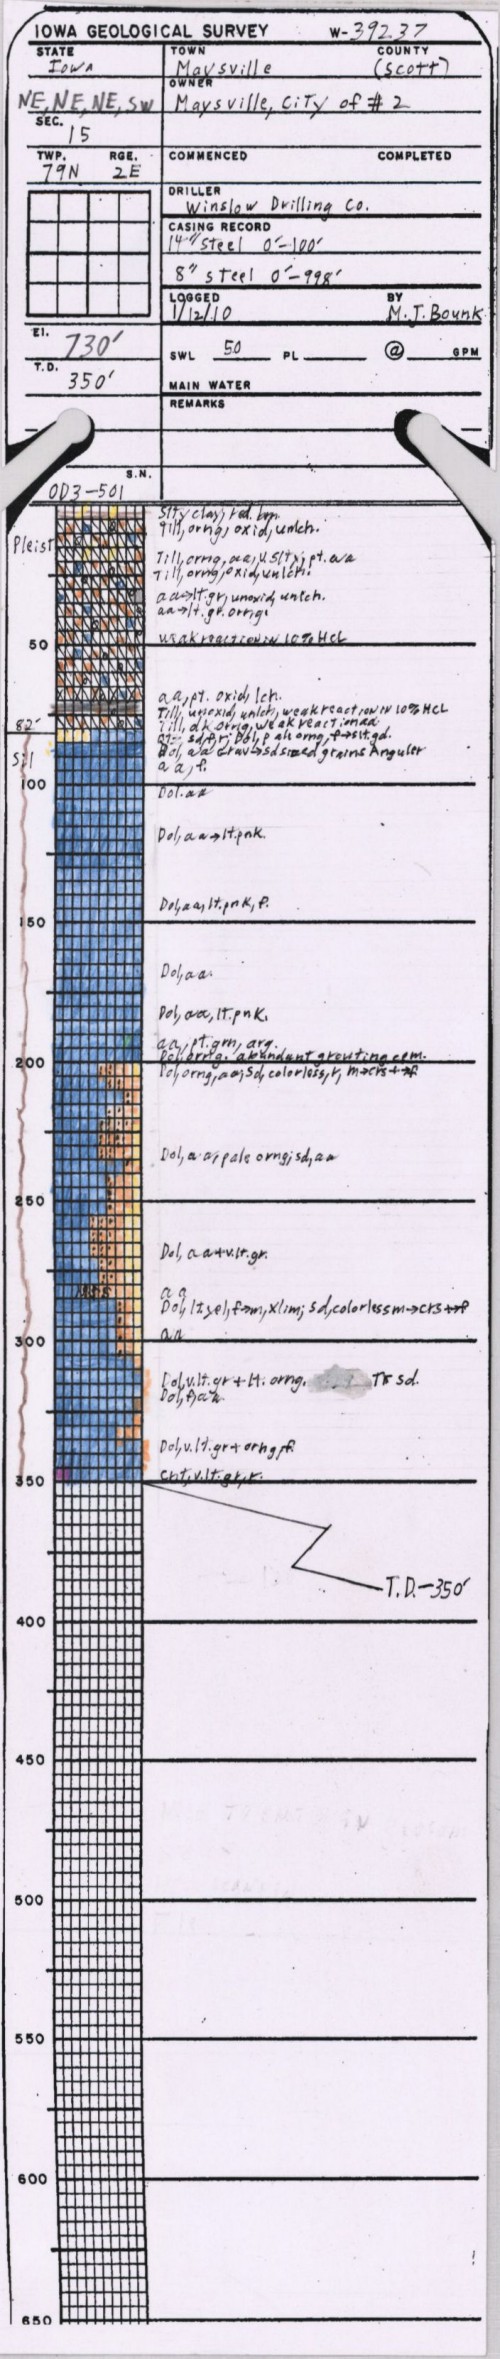 IOWA GEOLOGICAL SURVEY W-39237
STATE TOWN COUNTY
Iowa Maysville (Scott)
OWNER
NE, NE, NE, SW Maysville, City of # 2
SEC.
15
TWP. RGE. COMMENCED COMPLETED
79N 2E
DRILLER
Winslow Drilling Co.
CASING RECORD
14" steel 0'-100'
8" steel 0'-998'
LOGGED BY
1/12/10 M.J. Bounk
El.
730' SWL 50 PL @ GPM
T.D.
350' MAIN WATER
REMARKS
S.N.
OD3-501
Slty clay, red. brn.
Till, orng, oxid, unlch.
Pleist
Till, orng, aa, v. slty; pt. ava
Till, orng, oxid, unlch.
aa→lt.gr, unoxid, unlch.
aa→lt. gr. orng.
weak reaction in 10% HCL
50
aa, pt. oxid, lch.
Till, unoxid, unlch, weak reaction in 10% HCL
Till, dk. orng, weak reaction aa
82' Dol, pale orng, f→slt. gd.
Sil Dol, aa Grav→sd sized grains Anguler
aa, f.
100
Dol. aa
Dol, aa→lt. pnk.
Dol, aa, lt. pnk, f.
150
Dol, aa.
Dol, aa, lt. pnk.
aa, pt. grn, arg.
200 Dol, orng. abundant grouting cem.
Dol, orng, aa; Sd, colorless, r, m→crs+→f
Dol, aa, pale orng; sd, aa
250
Dol, aa+v. lt. gr.
aa
Dol, lt yel, f→m, xlim; sd, colorless m→crs+→f
300 aa
Dol, v. lt. gr + lt. orng. Tr sd.
Dol, f, aa.
Dol, v. lt. gr + orng, f.
350 Cht, v. lt. gr, r.
T.D.-350'
400
450
500
550
600
650